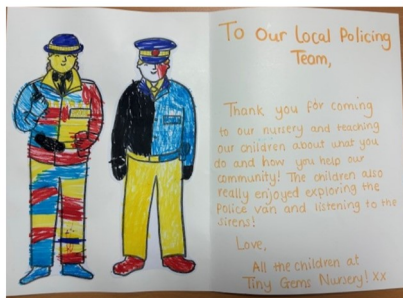 To Our Local Policing
Team,
Thank you for coming
to our nursery and teaching
our children about what you
do and how you help our
community! The children also
really enjoyed exploring the
Police van and listening to the
sirens!
Love,
All the children at
Tiny Gems Nursery! xx